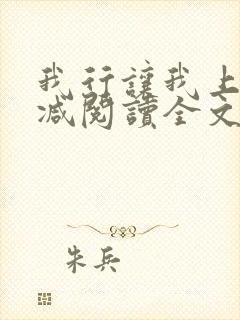 我行讓我上
減閱讀全文
朱兵